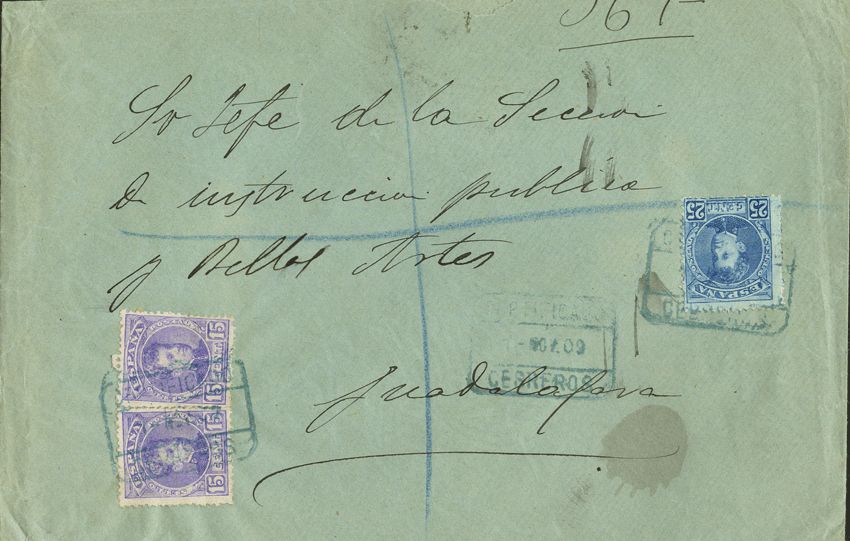 Sr Jefe de la Seccion
de instruccion publica
y Bellas Artes
Guadalajara
CERTIFICADO
09
CEBREROS
25
25
CENT
ESPAÑA
15
ESPAÑA
15
ESPAÑA